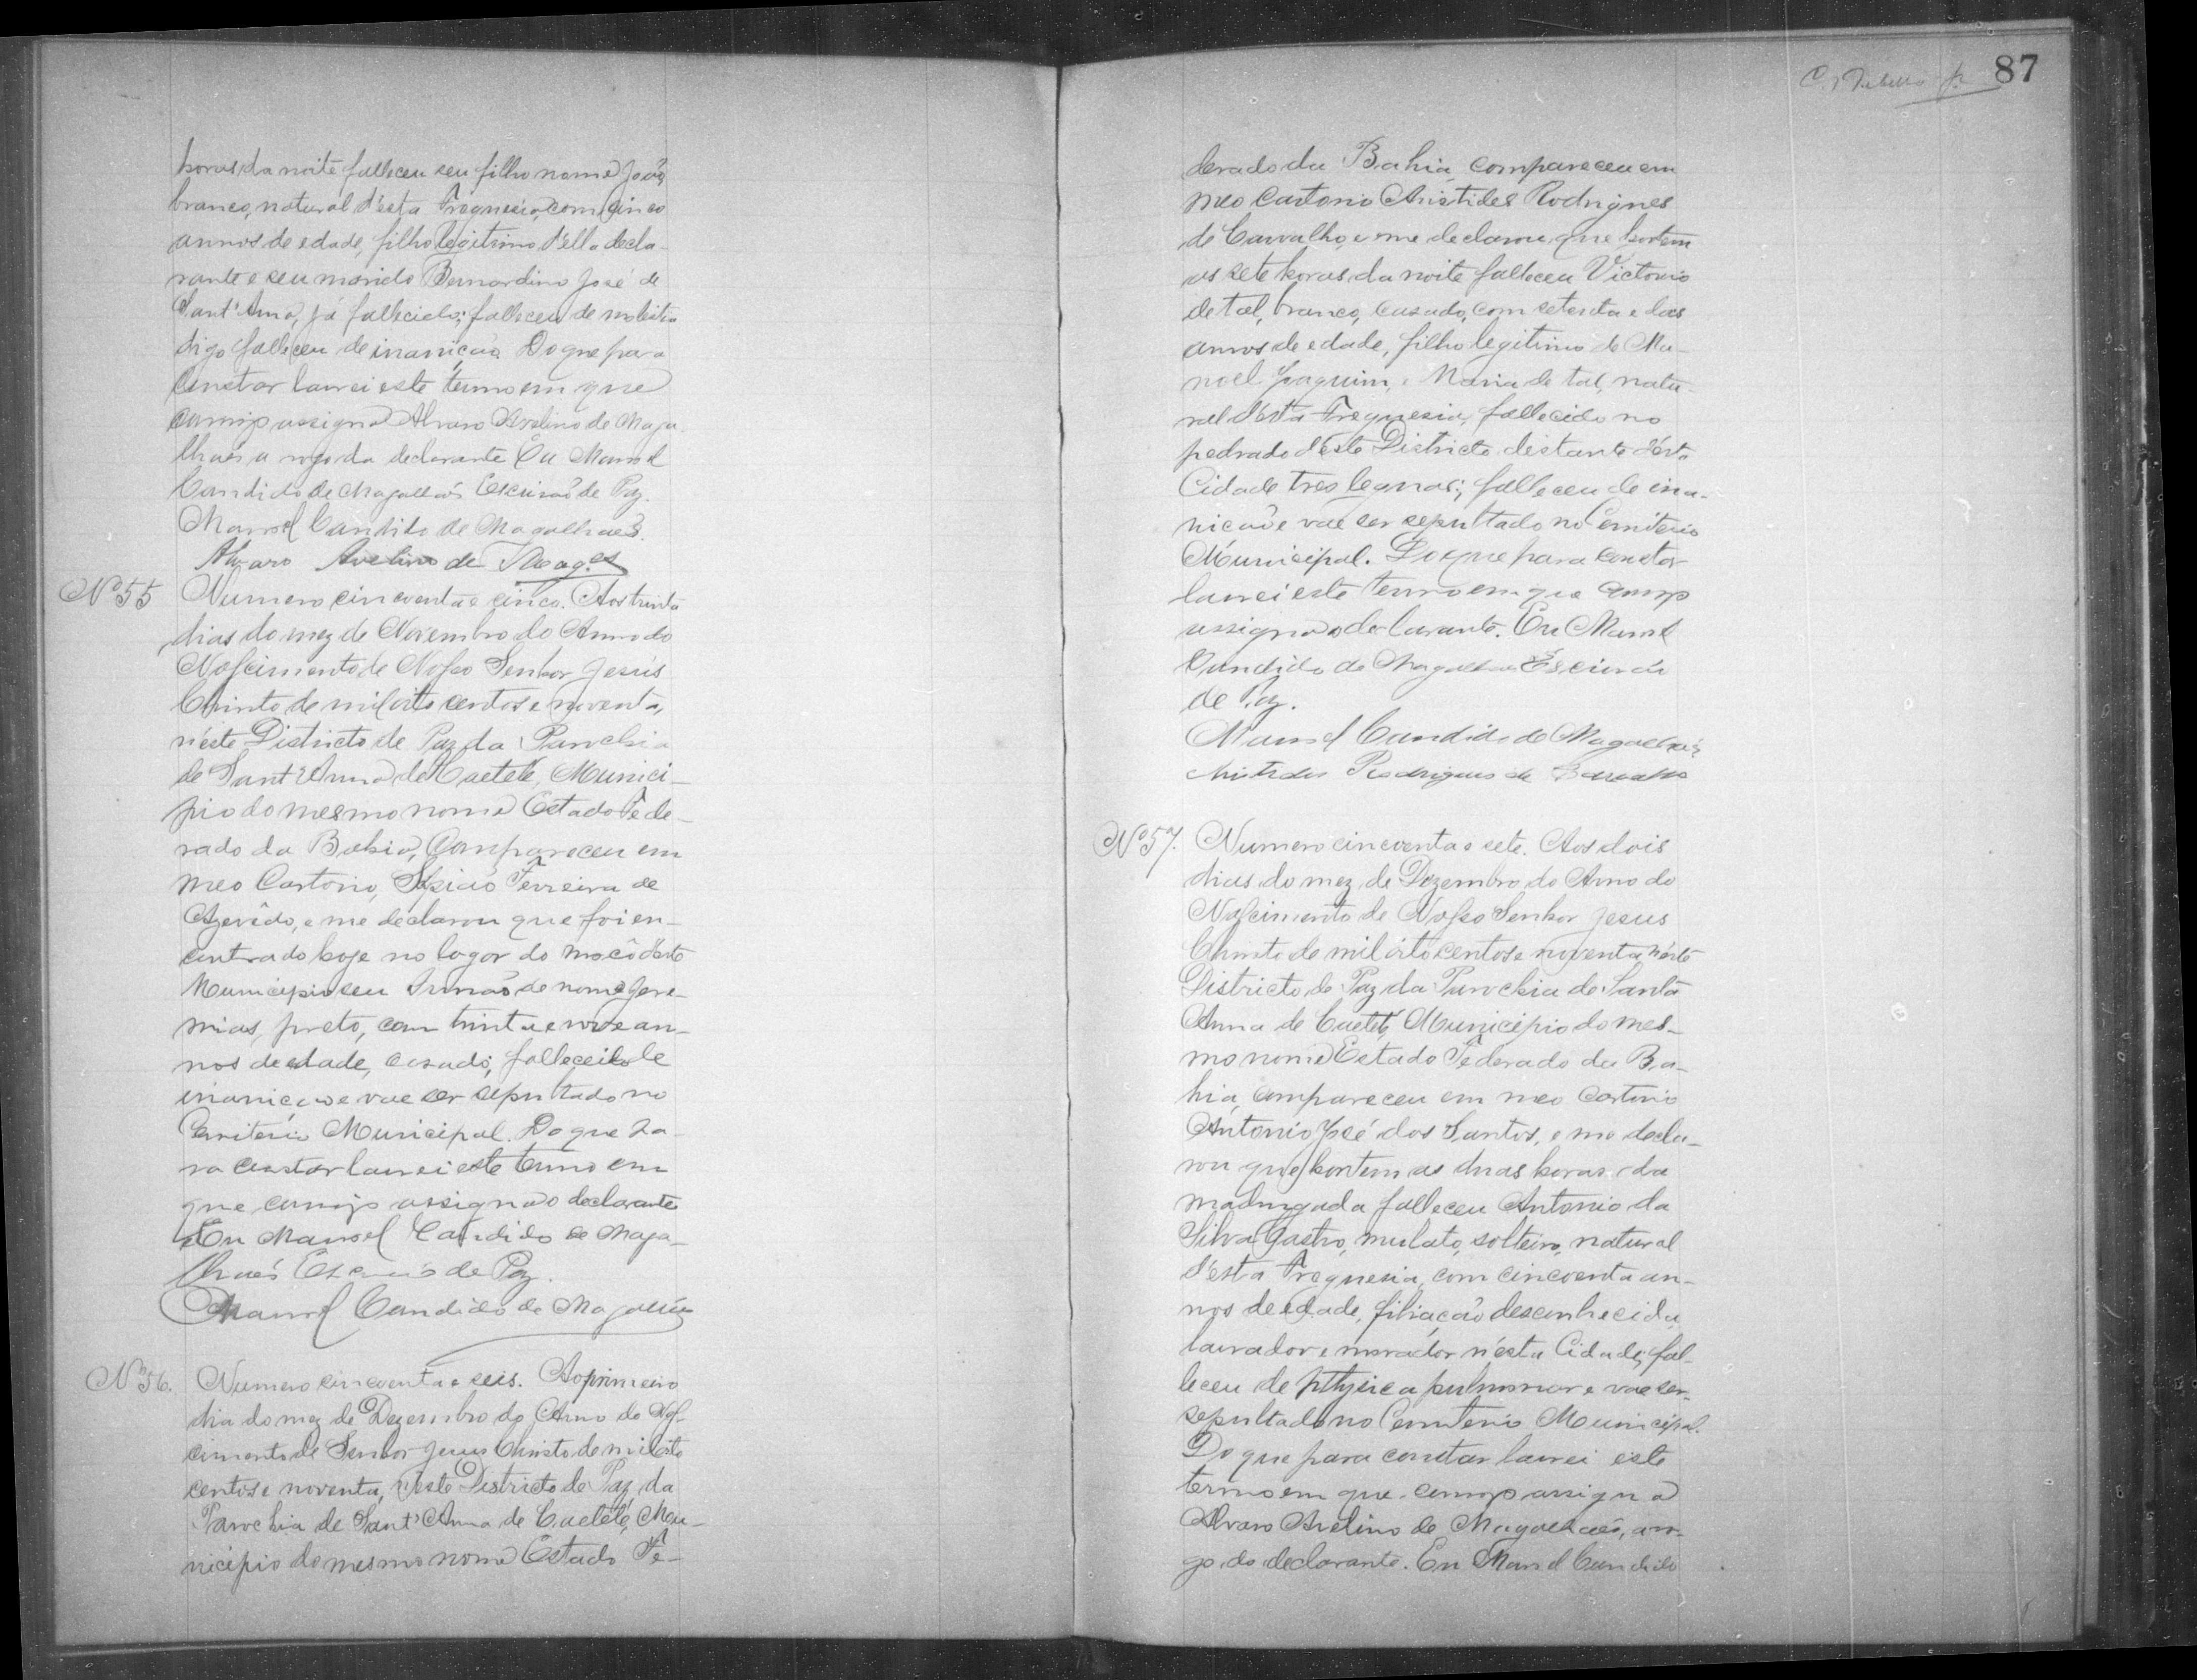 horas da noite falleceu seu filho nome João,
branco, natural d'esta Freguesia, com cinco
annos de edade, filho legitimo d'ella decla-
rante e seu marido Bernardino José de
Sant'Anna, já fallecido; falleceu de molestia
digo falleceu de inanição. Do que para
constar lavrei este termo em que
comigo assigna Alvaro Avelino de Maga-
lhaẽs a rogo da declarante. Eu Manoel
Candido de Magalhaẽs Escrivaõ de Paz.
Manoel Candido de Magalhaẽs.
Alvaro Avelino de Mag.es
Nº 55 Numero cincoenta e cinco. Aos trinta
dias do mez de Novembro do Anno do
Nascimento de Nosso Senhor Jesús
Christo de mil oito centos e noventa,
n'éste Districto de Paz da Parochia
de Sant'Anna de Caeteté, Munici-
pio do mesmo nome Estado Fede-
rado da Bahia, compareceu em
meo Cartorio, Ferreira de
Azevêdo, e me declarou que foi en-
contrado hoje no logar do mocó d'este
Municipio seu Irmaõ de nome Jere-
mias, preto, com trinta e nove an-
nos de edade, casado; fallecido de
inanição e vae ser sepultado no
Cemiterio Municipal. Do que pa-
ra constar lavrei este termo em
que comigo assigna o declarante
Eu Manoel Candido de Maga-
lhaẽs Escrivaõ de Paz.
Manoel Candido de Magalhaẽs
Nº 56. Numero cincoenta e seis. Ao primeiro
dia do mez de Dezembro do Anno do Nas-
cimento de Senhor Jesus Christo de mil oito
centos e noventa, n'este Districto de Paz da
Parochia de Sant'Anna de Caeteté, Mu-
nicipio do mesmo nome Estado Fe-
87
derado da Bahia, compareceu em
meo Cartorio Aristides Rodrigues
de Carvalho, e me declarou que hontem
as sete horas da noite falleceu Victorio
de tal, branco, casado, com setenta e dois
annos de edade, filho legitimo de Ma-
noel Joaquim, e Maria de tal, natu-
ral d'esta Freguesia, fallecido no
pedrado d'éste Districto distante d'esta
Cidade tres legoas; falleceu de ina-
nicaõ e vae ser sepultado no Cemiterio
Municipal. Do que para constar
lavrei este termo em que comigo
assigna o declarante. Eu Manoel
Candido de Magalhaẽs Escrivaõ
de Paz.
Manoel Candido de Magalhaẽs
Aristides Rodrigues de Carvalho
Nº 57. Numero cincoenta e sete. Aos dois
dias do mez de Dezembro do Anno do
Nascimento de Nosso Senhor Jesus
Christo de mil oito centos e noventa n'éste
Districto de Paz da Parochia de Santa
Anna de Caeteté, Municipio do mes-
mo nome Estado Federado da Ba-
hia, compareceu em meo Cartorio
Antonio José dos Santos, e me decla-
rou que hontem as duas horas da
madrugada falleceu Antonio da
Silva Castro, mulato, solteiro, natural
d'esta Freguesia, com cincoenta an-
nos de edade, filiação desconhecida,
lavrador e morador n'ésta Cidade; fal-
leceu de phtysica pulmonar e vae ser
sepultado no Cemiterio Municipal.
Do que para constar lavrei este
termo em que comigo assigna
Alvaro Avelino de Magalhaẽs, a ro-
go do declarante. Eu Manoel Candido